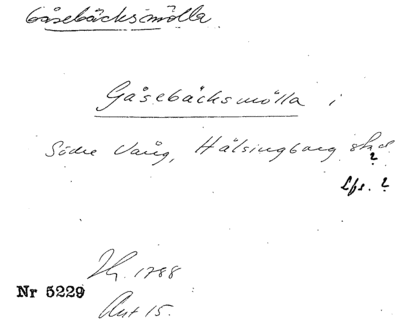 Gåsebäcksmölla
Gåsebäcksmölla i
Södre Vång, Hälsingborg
?
Lfs. ?
Nr 5229
1788
Aut 15.